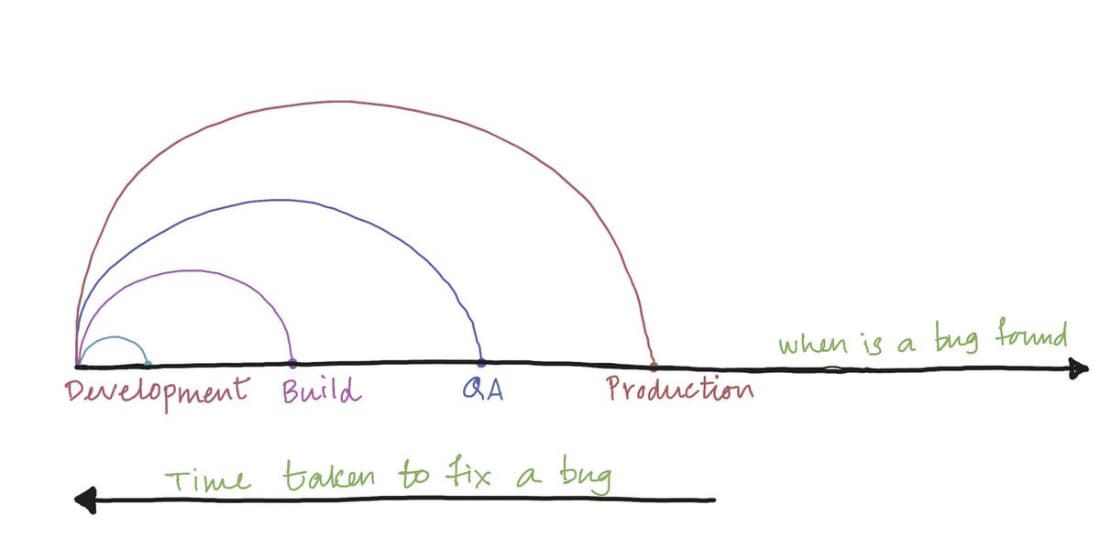 when is a bug found
Development Build QA Production
Time taken to fix a bug